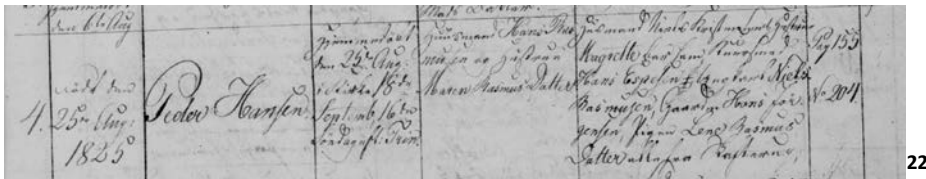 den 6te Aug
4.
Født den
25de Aug:
1825
Peder Hansen
hjemmedøbt
den 25de Aug.
i Kirke 18de
Septemb. 16de
Søndag eft. Trin.
Huusmand Hans Ras-
musen og Hustrue
Maren Rasmus Datter
Huusmand Niels Kristensens Hustrue
Magrethe
Hans Espesen Niels
Rasmusen, Hans Jør-
gensen, Pigen Lene Rasmus
Datter alle fra
Pag 153
No 204.
22